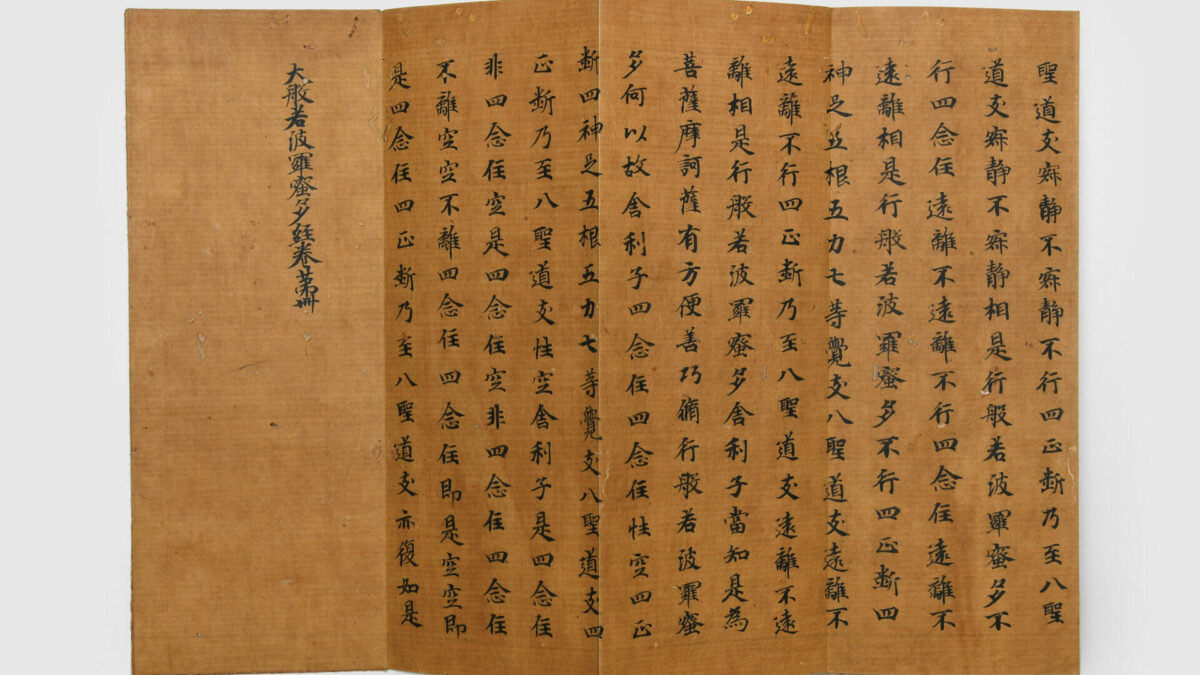 聖道支寂静不寂静不行四正断乃至八聖
道支寂静不寂静相是行般若波羅蜜多不
行四念住遠離不遠離不行四念住遠離不
遠離相是行般若波羅蜜多不行四正断四
神足五根五力七等覺支八聖道支遠離不
遠離不行四正断乃至八聖道支遠離不遠
離相是行般若波羅蜜多舍利子當知是為
菩薩摩訶薩有方便善巧脩行般若波羅蜜
多何以故舍利子四念住四念住性空四正
断四神足五根五力七等覺支八聖道支四
正断乃至八聖道支性空舍利子是四念住
非四念住空是四念住空非四念住四念住
不離空空不離四念住四念住即是空空即
是四念住四正断乃至八聖道支亦復如是
大般若波羅蜜多経卷第卌